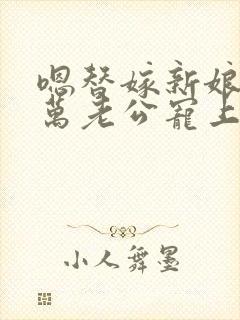 嗯替嫁新娘
萬老公寵上
小人舞墨